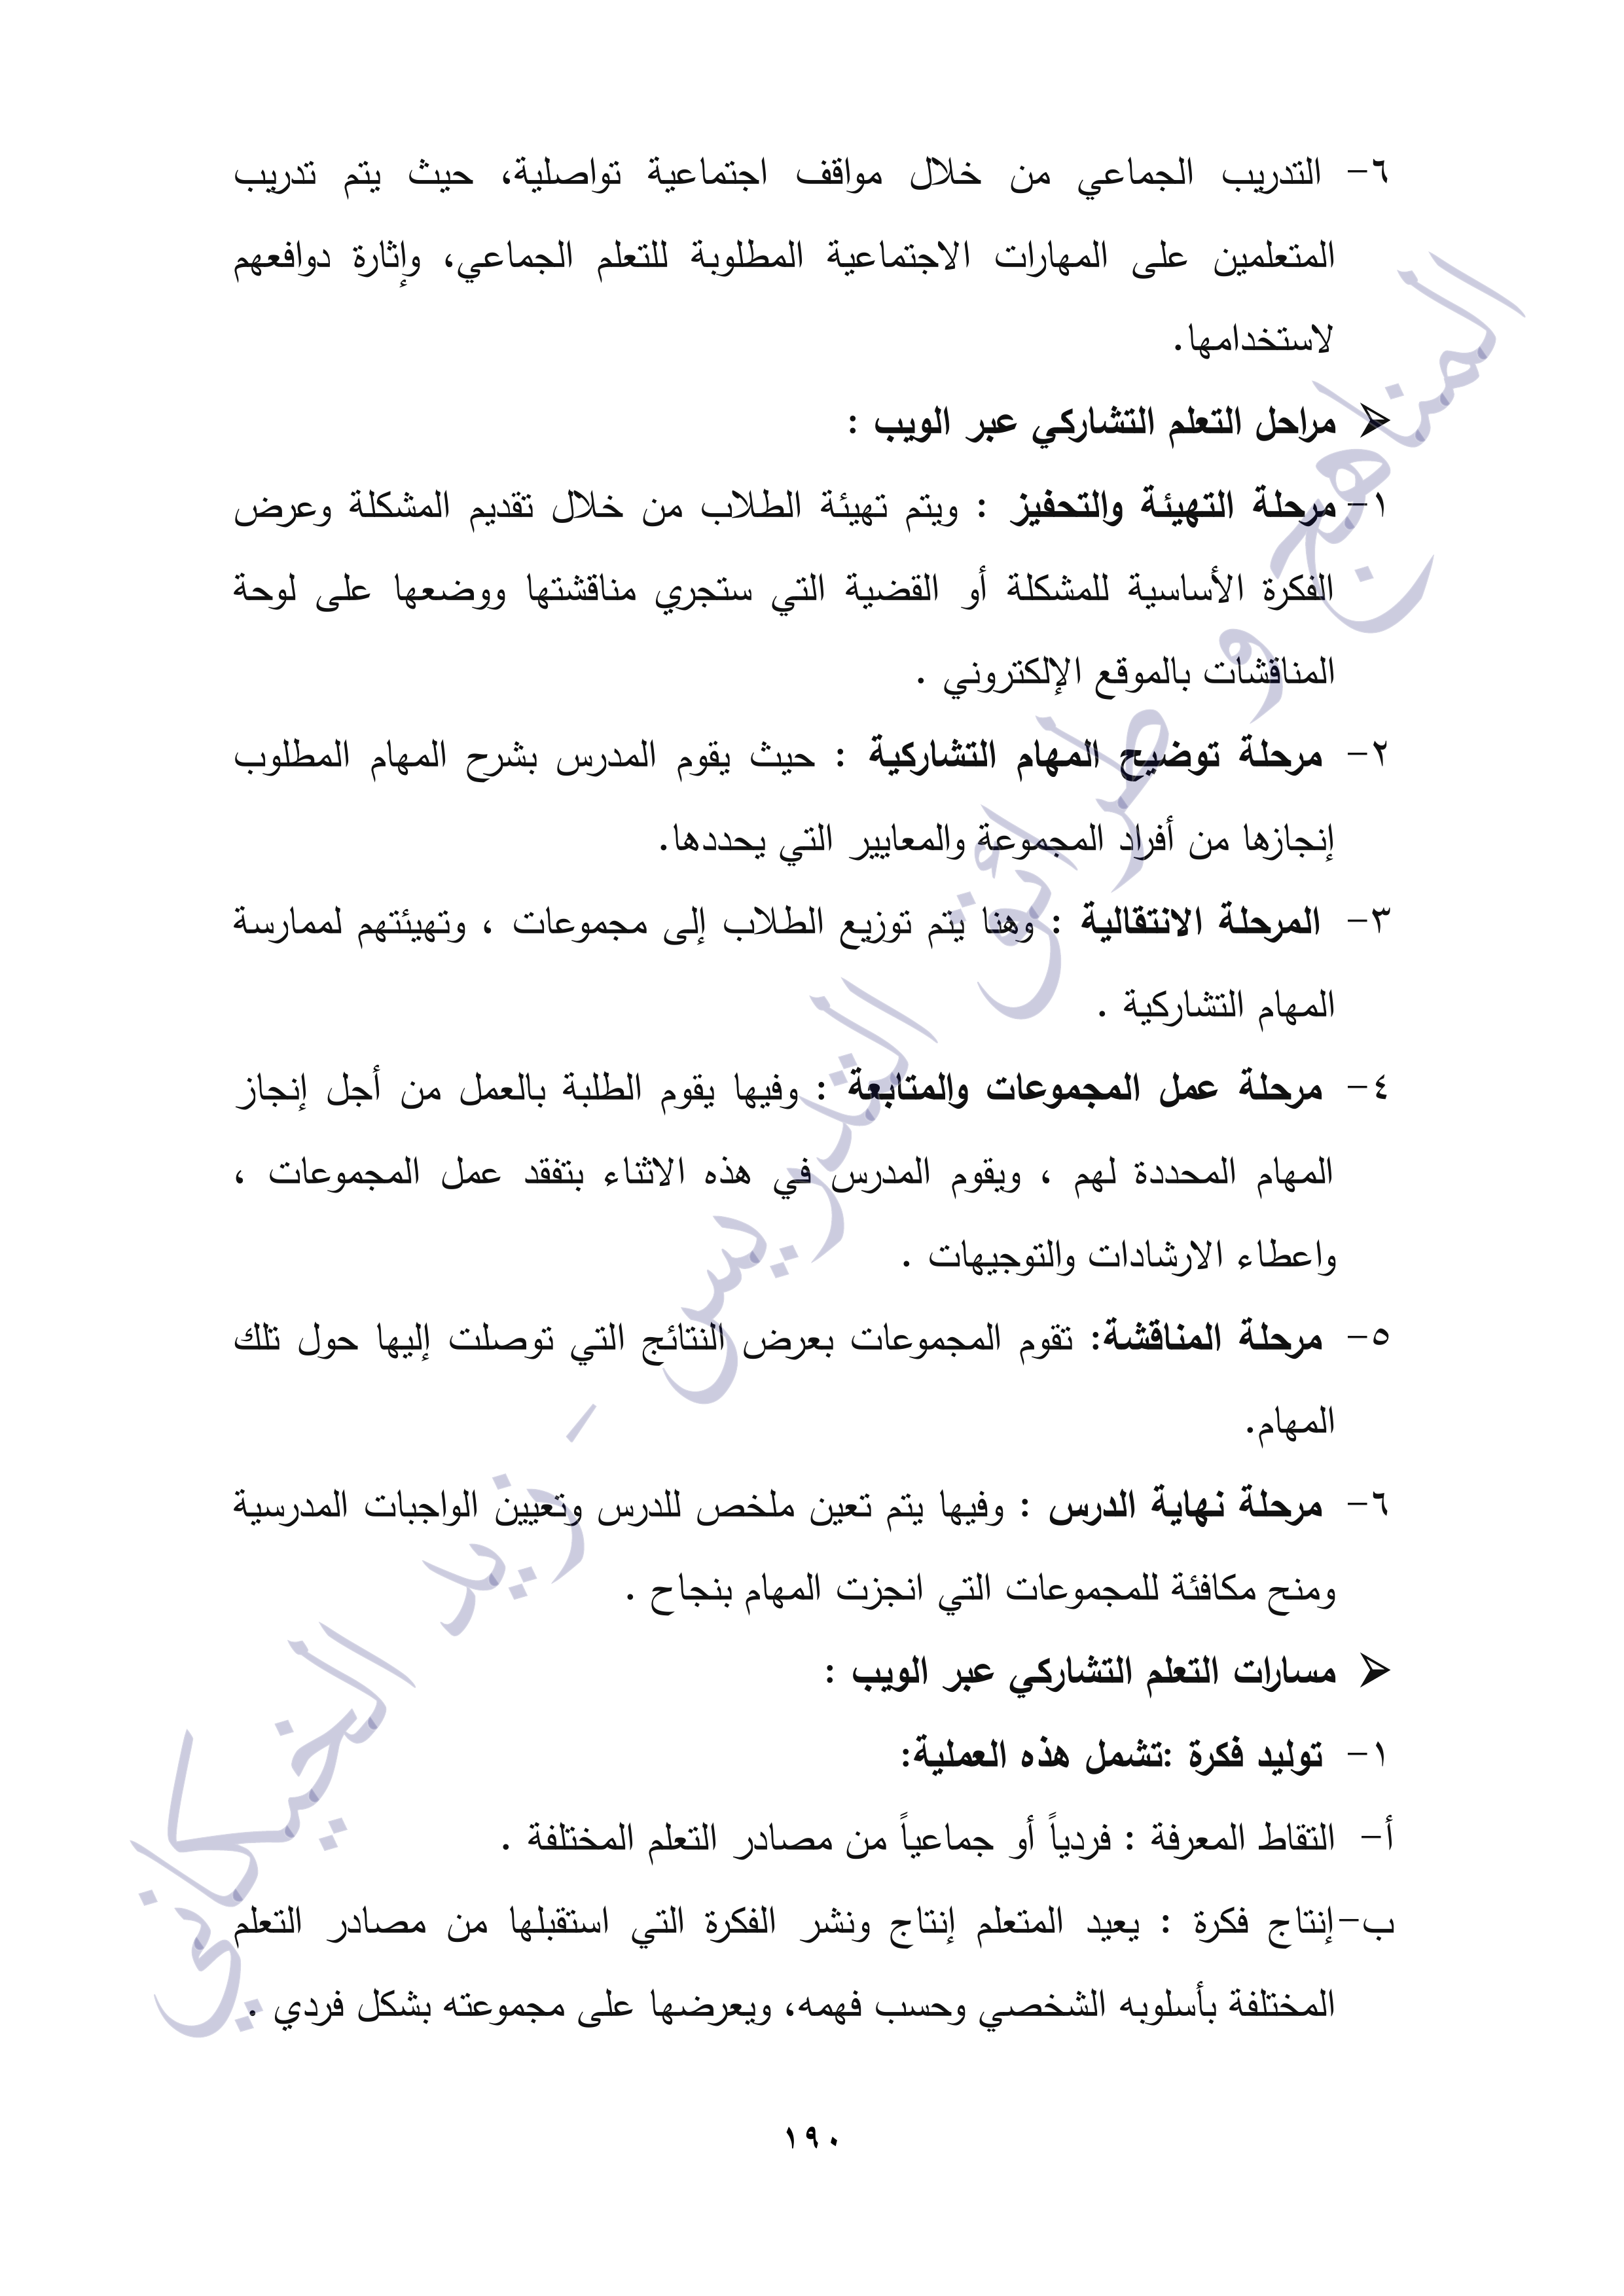 ٦- التدريب الجماعي من خلال مواقف اجتماعية تواصلية، حيث يتم تدريب
المتعلمين على المهارات الاجتماعية المطلوبة للتعلم الجماعي، وإثارة دوافعهم
لاستخدامها.
➢ مراحل التعلم التشاركي عبر الويب :
١- مرحلة التهيئة والتحفيز : ويتم تهيئة الطلاب من خلال تقديم المشكلة وعرض
الفكرة الأساسية للمشكلة أو القضية التي ستجري مناقشتها ووضعها على لوحة
المناقشات بالموقع الإلكتروني .
٢- مرحلة توضيح المهام التشاركية : حيث يقوم المدرس بشرح المهام المطلوب
إنجازها من أفراد المجموعة والمعايير التي يحددها.
٣- المرحلة الانتقالية : وهنا يتم توزيع الطلاب إلى مجموعات ، وتهيئتهم لممارسة
المهام التشاركية .
٤- مرحلة عمل المجموعات والمتابعة : وفيها يقوم الطلبة بالعمل من أجل إنجاز
المهام المحددة لهم ، ويقوم المدرس في هذه الاثناء بتفقد عمل المجموعات ،
واعطاء الارشادات والتوجيهات .
٥- مرحلة المناقشة: تقوم المجموعات بعرض النتائج التي توصلت إليها حول تلك
المهام.
٦- مرحلة نهاية الدرس : وفيها يتم تعين ملخص للدرس وتعيين الواجبات المدرسية
ومنح مكافئة للمجموعات التي انجزت المهام بنجاح .
➢ مسارات التعلم التشاركي عبر الويب :
١- توليد فكرة :تشمل هذه العملية:
أ- التقاط المعرفة : فردياً أو جماعياً من مصادر التعلم المختلفة .
ب-إنتاج فكرة : يعيد المتعلم إنتاج ونشر الفكرة التي استقبلها من مصادر التعلم
المختلفة بأسلوبه الشخصي وحسب فهمه، ويعرضها على مجموعته بشكل فردي .
١٩٠
المناهج و طرائق التدريس - زيد الخيكاني